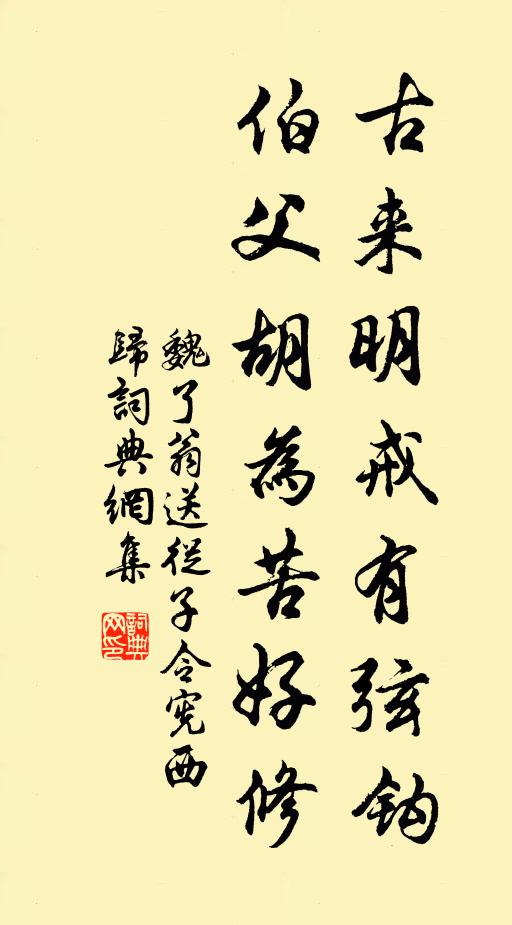 古来明戒有弦钩
伯父胡為苦好修
魏了翁送從子令憲西
歸詞典網集
詞典
网印